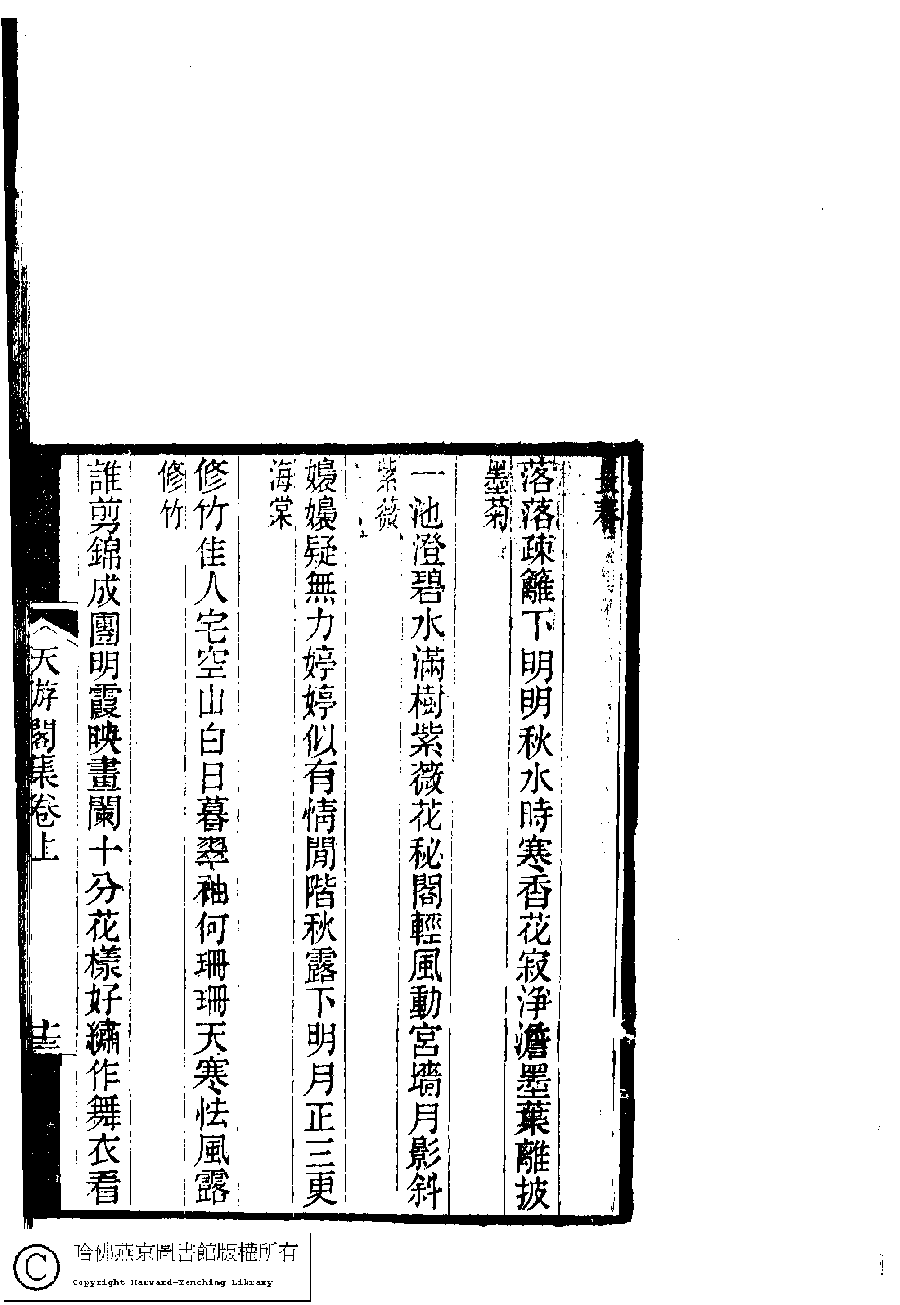 落落疎籬下明明秋水時寒香花寂淨澹墨葉離披
墨菊
一池澄碧水滿樹紫薇花秘閣輕風動宮墻月影斜
紫薇
嬝嬝疑無力婷婷似有情閒階秋露下明月正三更
海棠
修竹佳人宅空山白日暮翠袖何珊珊天寒怯風露
修竹
誰剪錦成團明霞映畫闌十分花樣好繡作舞衣看
天游閣集卷上
十三
哈佛燕京圖書館版權所有
Copyright Harvard-Yenching Library